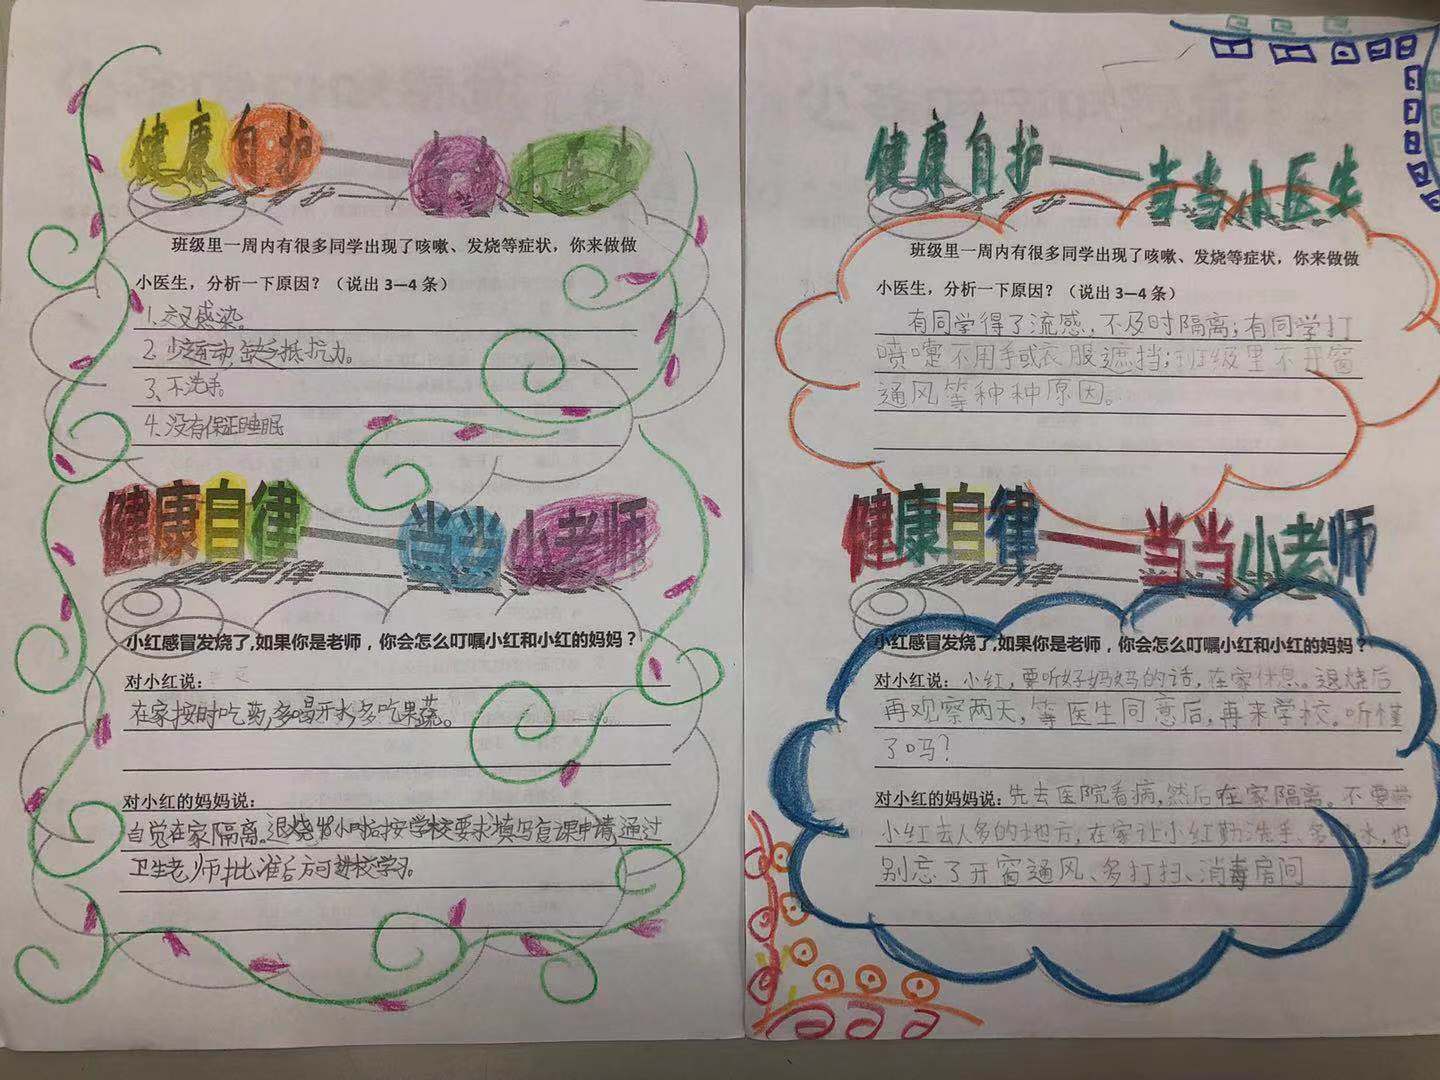 健康自护——当当小医生
班级里一周内有很多同学出现了咳嗽、发烧等症状，你来做做
小医生，分析一下原因？（说出3—4条）
1、交叉感染。
2、少运动,缺乏抵抗力。
3、不洗手。
4、没有保证睡眠
健康自律——当当小老师
小红感冒发烧了,如果你是老师，你会怎么叮嘱小红和小红的妈妈？
对小红说：
在家按时吃药,多喝开水,多吃果蔬。
对小红的妈妈说：
自觉在家隔离。退烧48小时后按学校要求填写复课申请,通过
卫生老师批准后方可进校学习。
健康自护——当当小医生
班级里一周内有很多同学出现了咳嗽、发烧等症状，你来做做
小医生，分析一下原因？（说出3—4条）
有同学得了流感,不及时隔离;有同学打
喷嚏不用手或衣服遮挡;班级里不开窗
通风等种种原因。
健康自律——当当小老师
小红感冒发烧了,如果你是老师，你会怎么叮嘱小红和小红的妈妈？
对小红说：小红,要听好妈妈的话,在家休息。退烧后
再观察两天,等医生同意后,再来学校。听懂
了吗?
对小红的妈妈说：先去医院看病,然后在家隔离。不要带
小红去人多的地方,在家让小红勤洗手、多水,也
别忘了开窗通风、多打扫、消毒房间